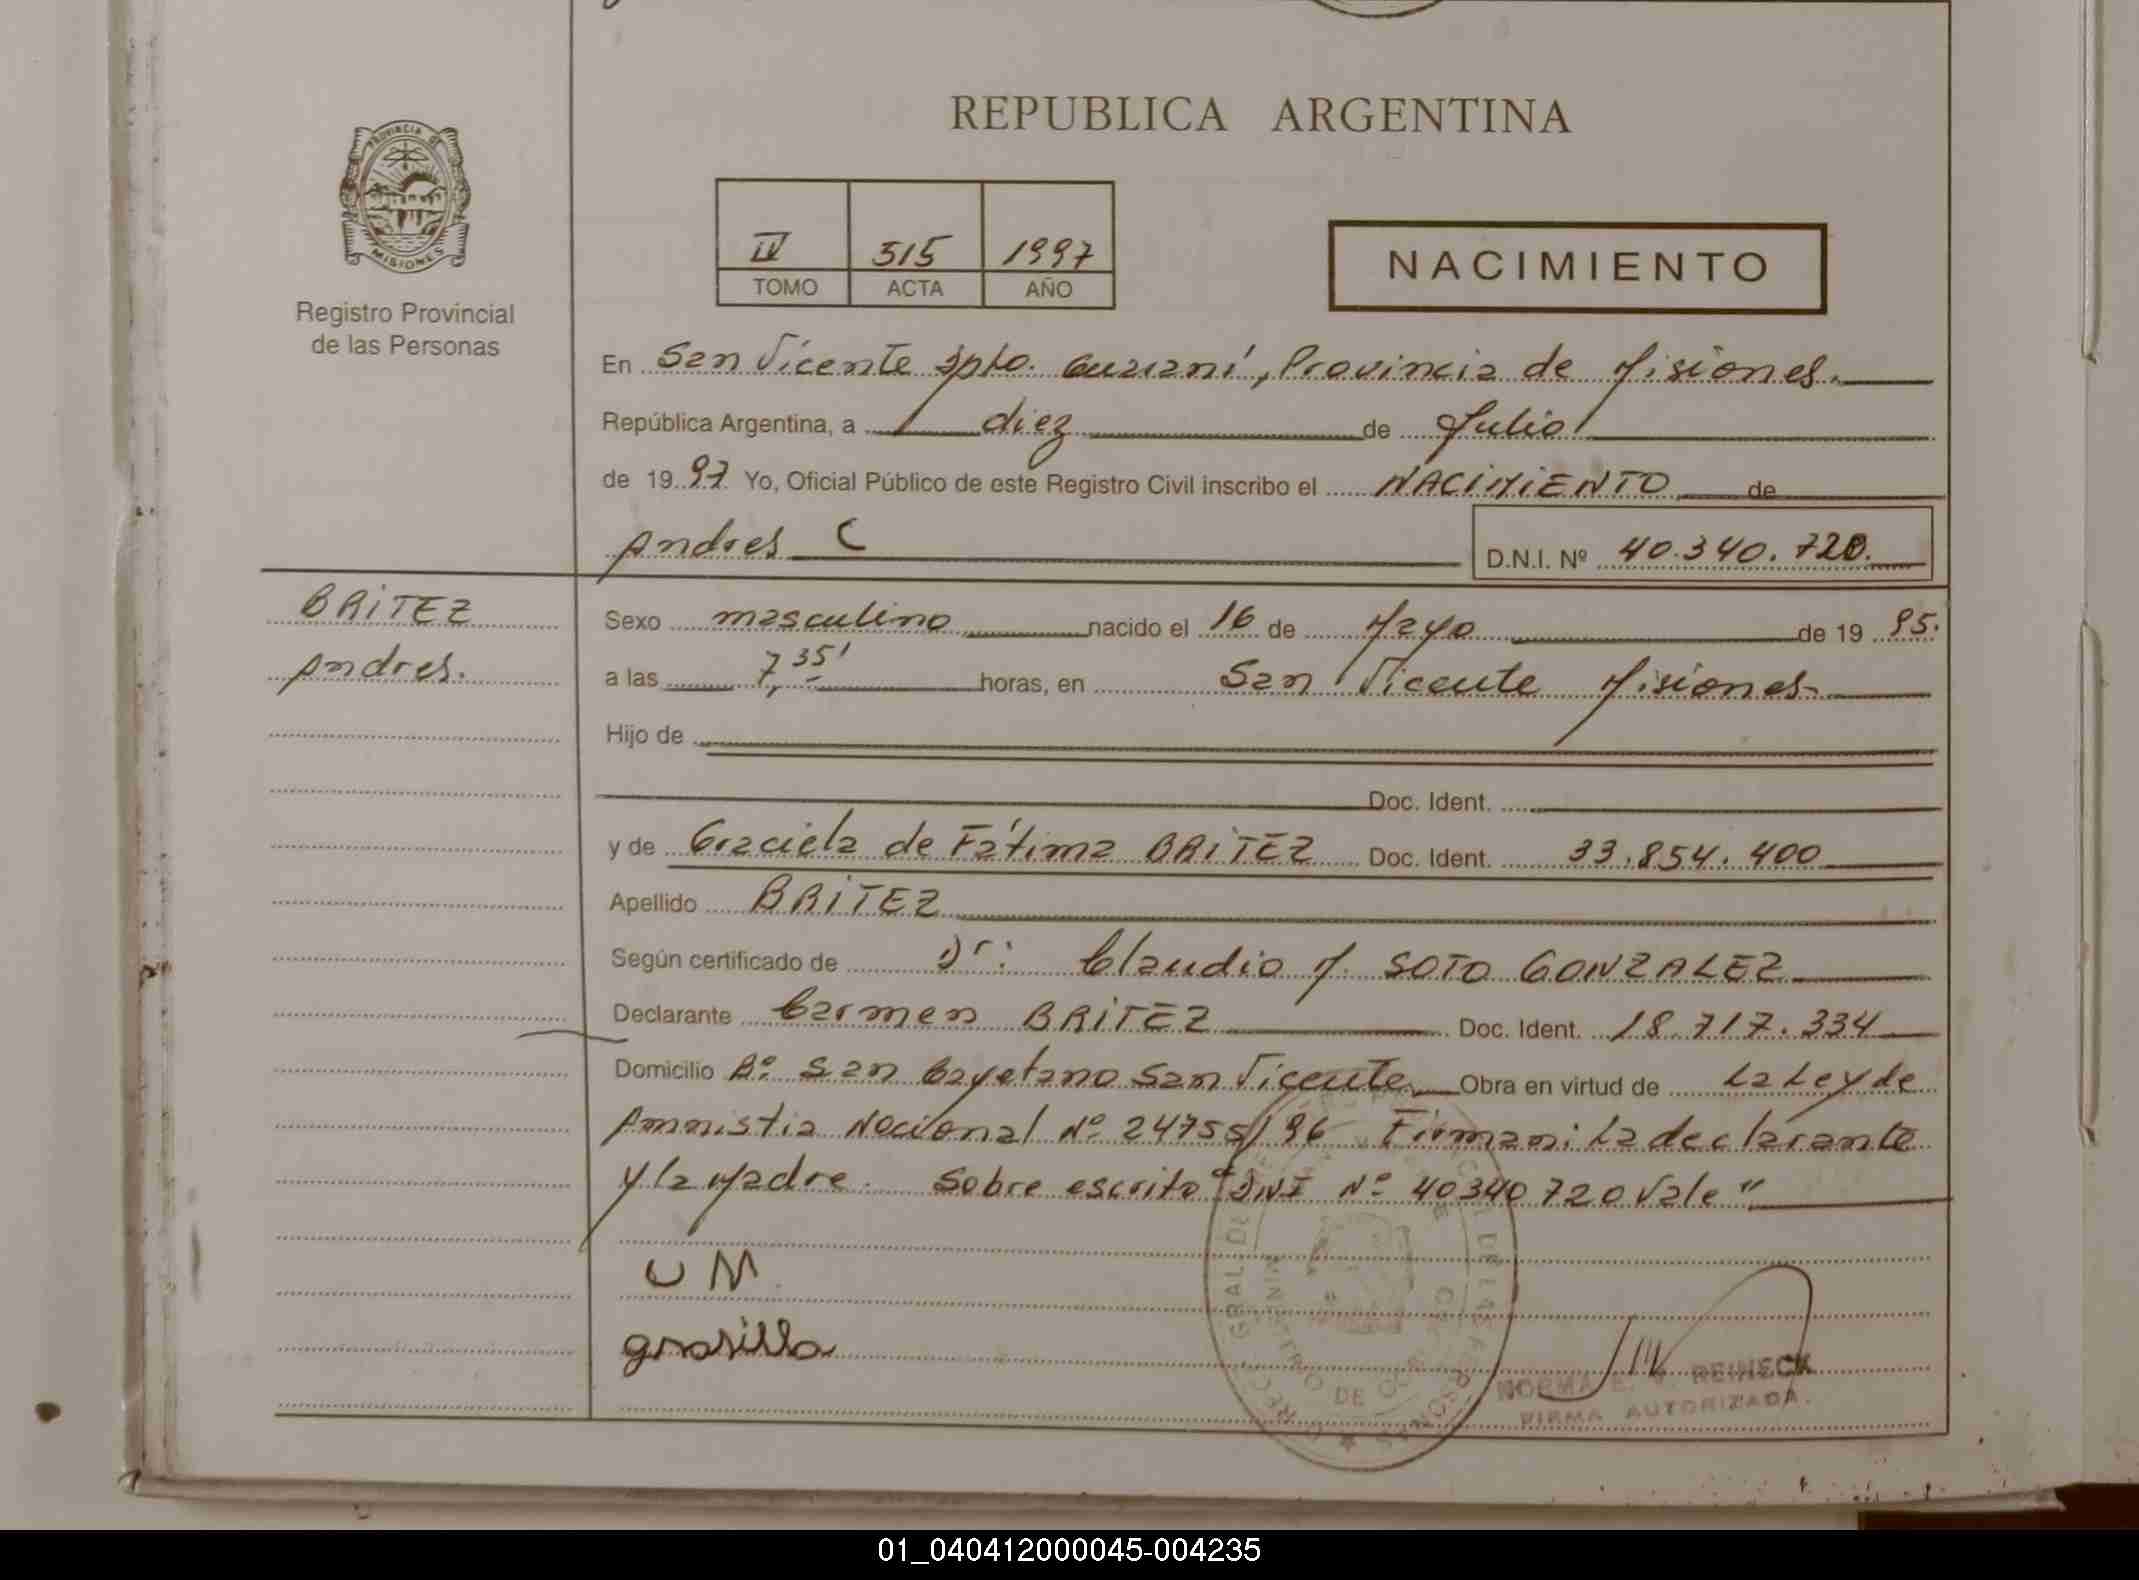 REPUBLICA ARGENTINA
PROVINCIA DE MISIONES
Registro Provincial
de las Personas
IV 515 1997
TOMO ACTA AÑO
NACIMIENTO
En San Vicente Dpto. Guaraní, Provincia de Misiones.
República Argentina, a diez de Julio
de 1997 Yo, Oficial Público de este Registro Civil inscribo el NACIMIENTO de
Andres C
D.N.I. Nº 40.340.720.
BRITEZ
Andres.
Sexo masculino nacido el 16 de Mayo de 1995.
a las 7,35' horas, en San Vicente Misiones
Hijo de
Doc. Ident.
y de Graciela de Fátima BRITEZ Doc. Ident. 33.854.400
Apellido BRITEZ
Según certificado de Dr: Claudio M. SOTO GONZALEZ
Declarante Carmen BRITEZ Doc. Ident. 18.717.334
Domicilio Bº San Cayetano San Vicente Obra en virtud de La Ley de
Amnistia Nacional Nº 24755/96 Firman: La declarante
y la Madre. Sobre escrito "DNI Nº 40340720 Vale"
NORMA E. REINECK
FIRMA AUTORIZADA.
01_040412000045-004235